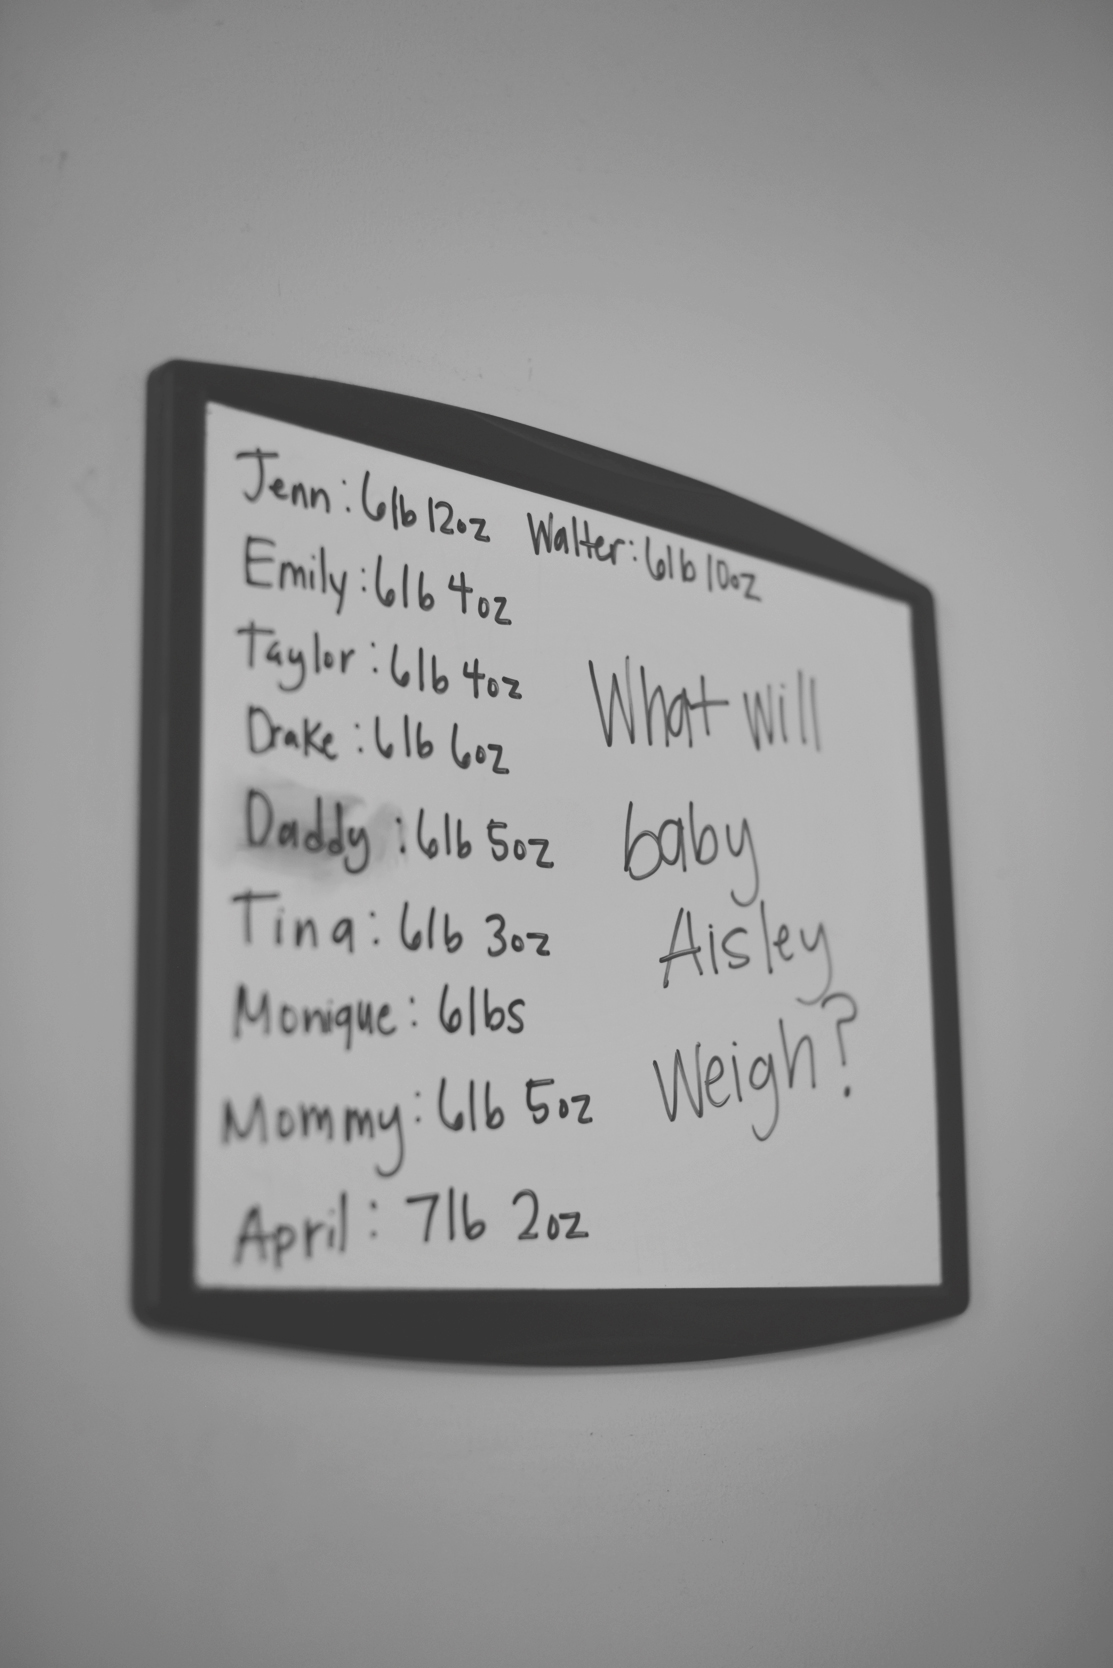 Jenn: 6lb 12oz Walter: 6lb 10oz
Emily: 6lb 4oz
Taylor: 6lb 4oz
Drake: 6lb 6oz
Daddy: 6lb 5oz
Tina: 6lb 3oz
Monique: 6lbs
Mommy: 6lb 5oz
April: 7lb 2oz
What will
baby
Aisley
Weigh?